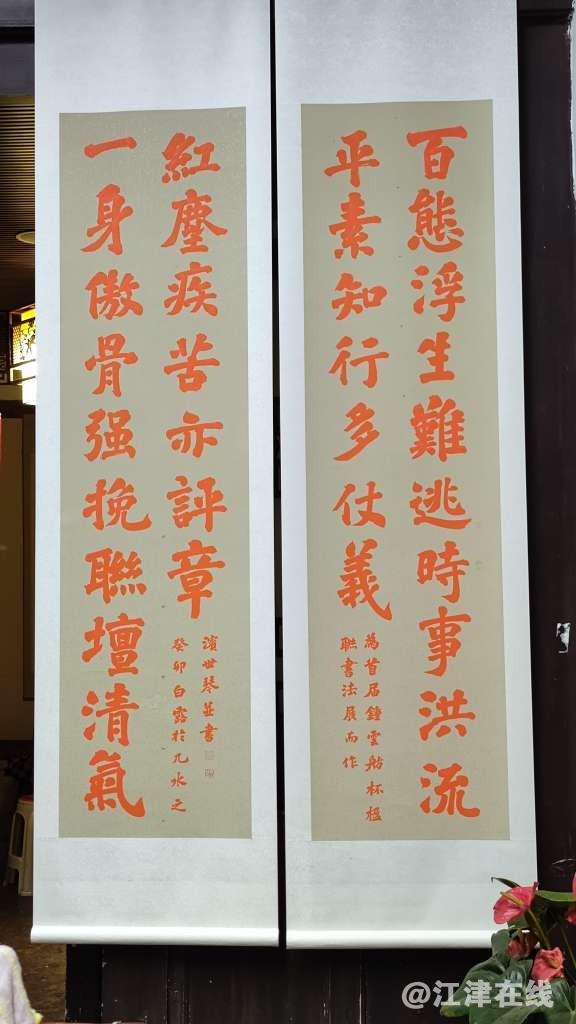 百態浮生難逃時事洪流
平素知行多仗義
為首届鍾雲舫杯楹
聯書法展而作
一身傲骨强挽聯壇清氣
紅塵疾苦亦評章
癸卯白露於几水之
濱世琴並書
@江津在线